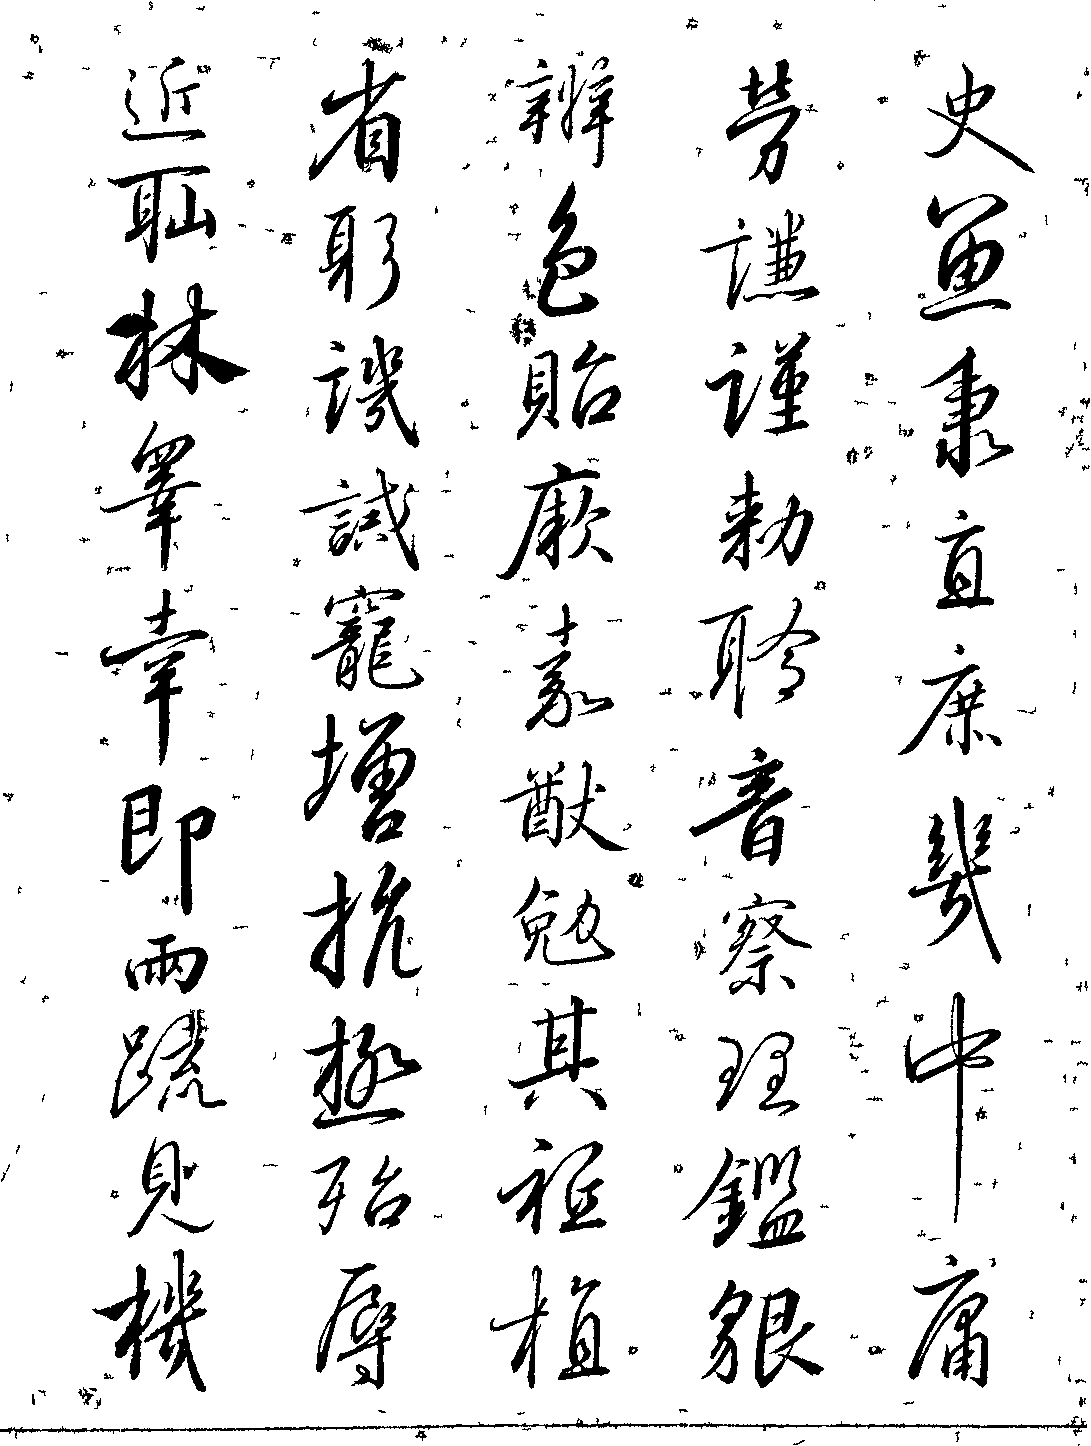 史魚秉直庶幾中庸
勞謙謹勅聆音察理鑑貌
辨色貽厥嘉猷勉其祗植
省躬譏誡寵增抗極殆辱
近恥林睪幸即兩疏見機